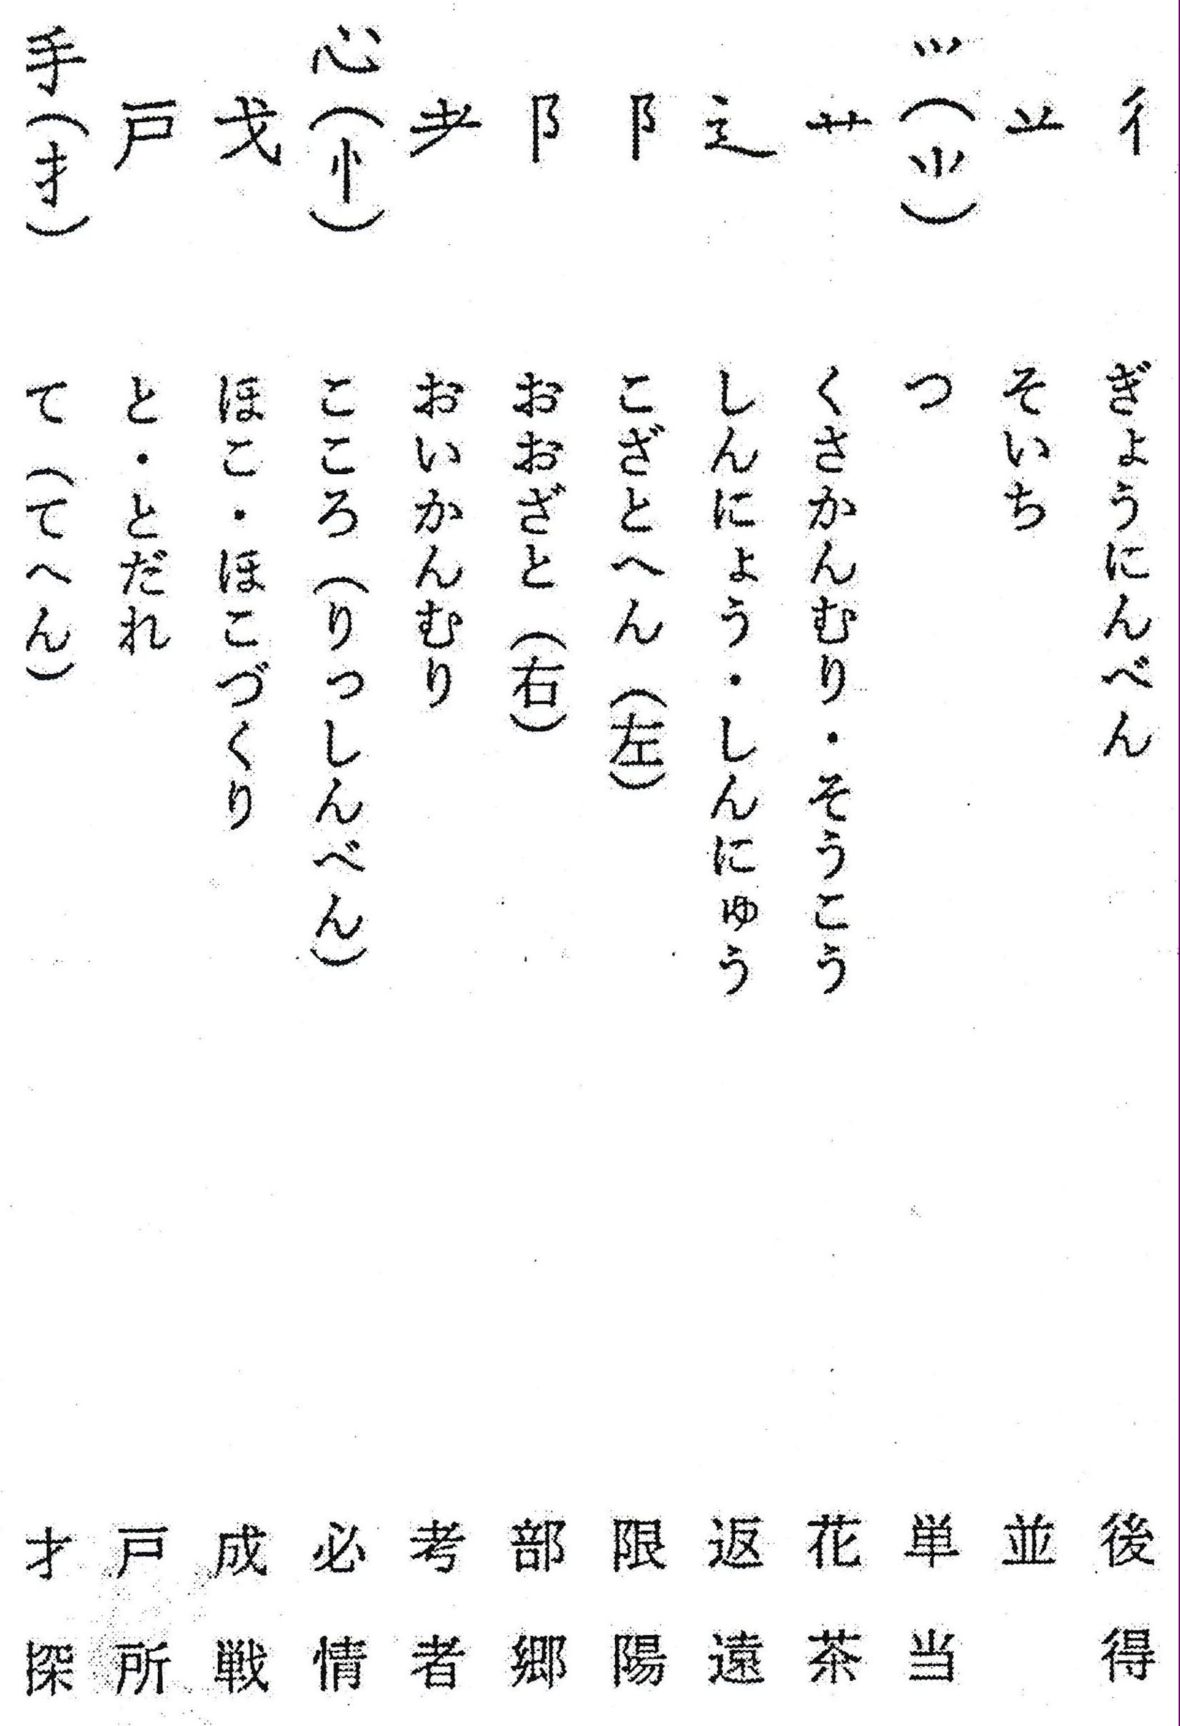 彳 ぎょうにんべん 後 得
䒑 そいち 並
⺍(⺌) つ 単 当
艹 くさかんむり・そうこう 花 茶
辶 しんにょう・しんにゅう 返 遠
阝 こざとへん(左) 限 陽
阝 おおざと(右) 部 郷
耂 おいかんむり 考 者
心(忄) こころ(りっしんべん) 必 情
戈 ほこ・ほこづくり 成 戦
戸 と・とだれ 戸 所
手(扌) て(てへん) 才 探